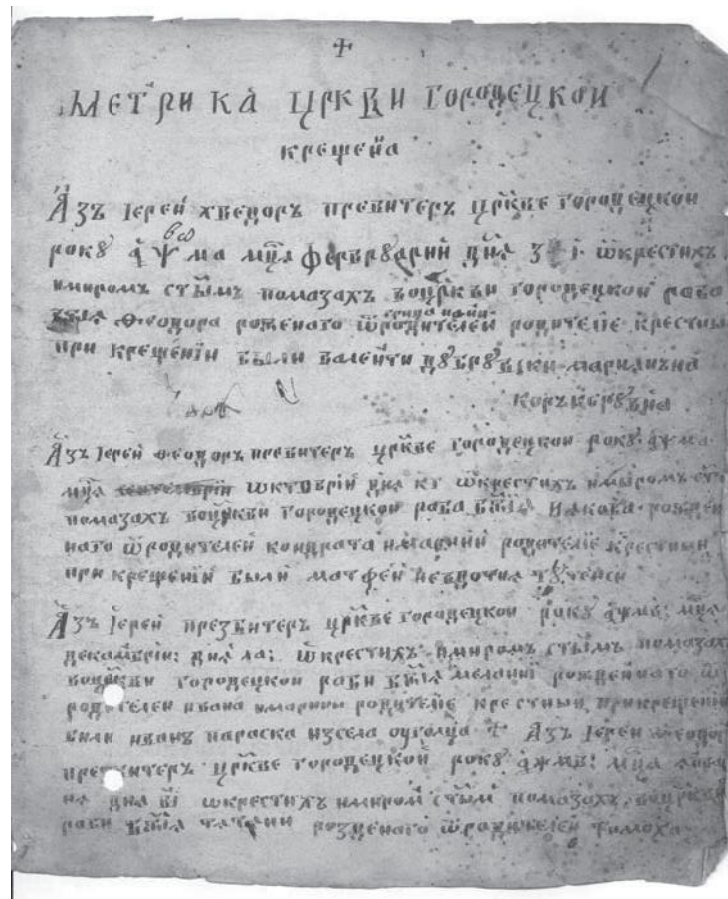 МЕТРИКА ЦРКВИ ГОРОДЕЦКОИ
КРЕЩЕНӤА
Азъ Іерей Хведоръ превитеръ црк҃ве городецкои
року ҂аѰма мц҃а ферврꙋарий дн҃я ѡкрестихъ
имиромъ ст҃ымъ помазахъ воцр҃кви городецкой раба
бж҃ия Ѳеодора роженаго ѿродителей родителїе крестныи
при крещенїи были валенти дꙋбрꙋвки мариянъна
Азъ Іерей Ѳеодоръ превитеръ црк҃ве городецкои року ҂аѱма
мц҃а ѡктоврїй дн҃я кг ѡкрестихъ имыромъ ст҃
помазахъ воцр҃кви городецкои раба бж҃ия Иякова рожден
наго ѿродителей кондрата имарийи родителїе крестныи
при крещенїи были матфей иевдочия
Азъ Іерей презвитеръ црк҃ве городецкои року ҂аѱмв: мц҃а
декамврїи: дн҃я ла: ѡкрестихъ имиромъ ст҃ымъ помазах
воцр҃кви городецкои раби бж҃ия меланий рожденнаго ѿ
родителей ивана имарини родителїе крестныи прикрещенїи
били иванъ параска изсела оуголца + Азъ Іерей Ѳеодор
превитеръ црк҃ве городецкой року ҂аѱмв: мц҃а
дн҃я вї ѡкрестихъ имиром ст҃ым помазахъ воцр҃кви
раби бж҃ия татяни розденаго ѿродителей тимоха